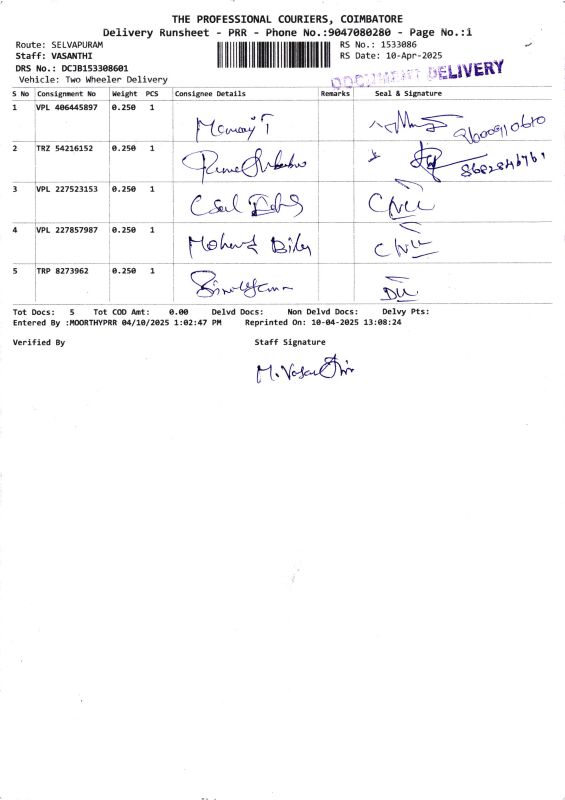 THE PROFESSIONAL COURIERS, COIMBATORE
Delivery Runsheet - PRR - Phone No.:9047080280 - Page No.:1
Route: SELVAPURAM
RS No.: 1533086
Staff: VASANTHI
RS Date: 10-Apr-2025
DRS No.: DCJB153308601
DOCUMENT DELIVERY
Vehicle: Two Wheeler Delivery
S No Consignment No Weight PCS Consignee Details Remarks Seal & Signature
1 VPL 406445897 0.250 1
9600910610
2 TRZ 54216152 0.250 1
3 VPL 227523153 0.250 1
4 VPL 227857987 0.250 1
5 TRP 8273962 0.250 1
Tot Docs: 5 Tot COD Amt: 0.00 Delvd Docs: Non Delvd Docs: Delvy Pts:
Entered By :MOORTHYPRR 04/10/2025 1:02:47 PM Reprinted On: 10-04-2025 13:08:24
Verified By Staff Signature